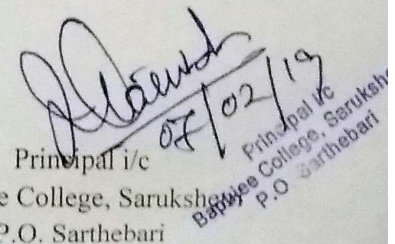 07/02/19
Principal i/c
e College, Sarukshetri
P.O. Sarthebari
Principal i/c
Bapujee College, Saruksh
P.O Sarthebari